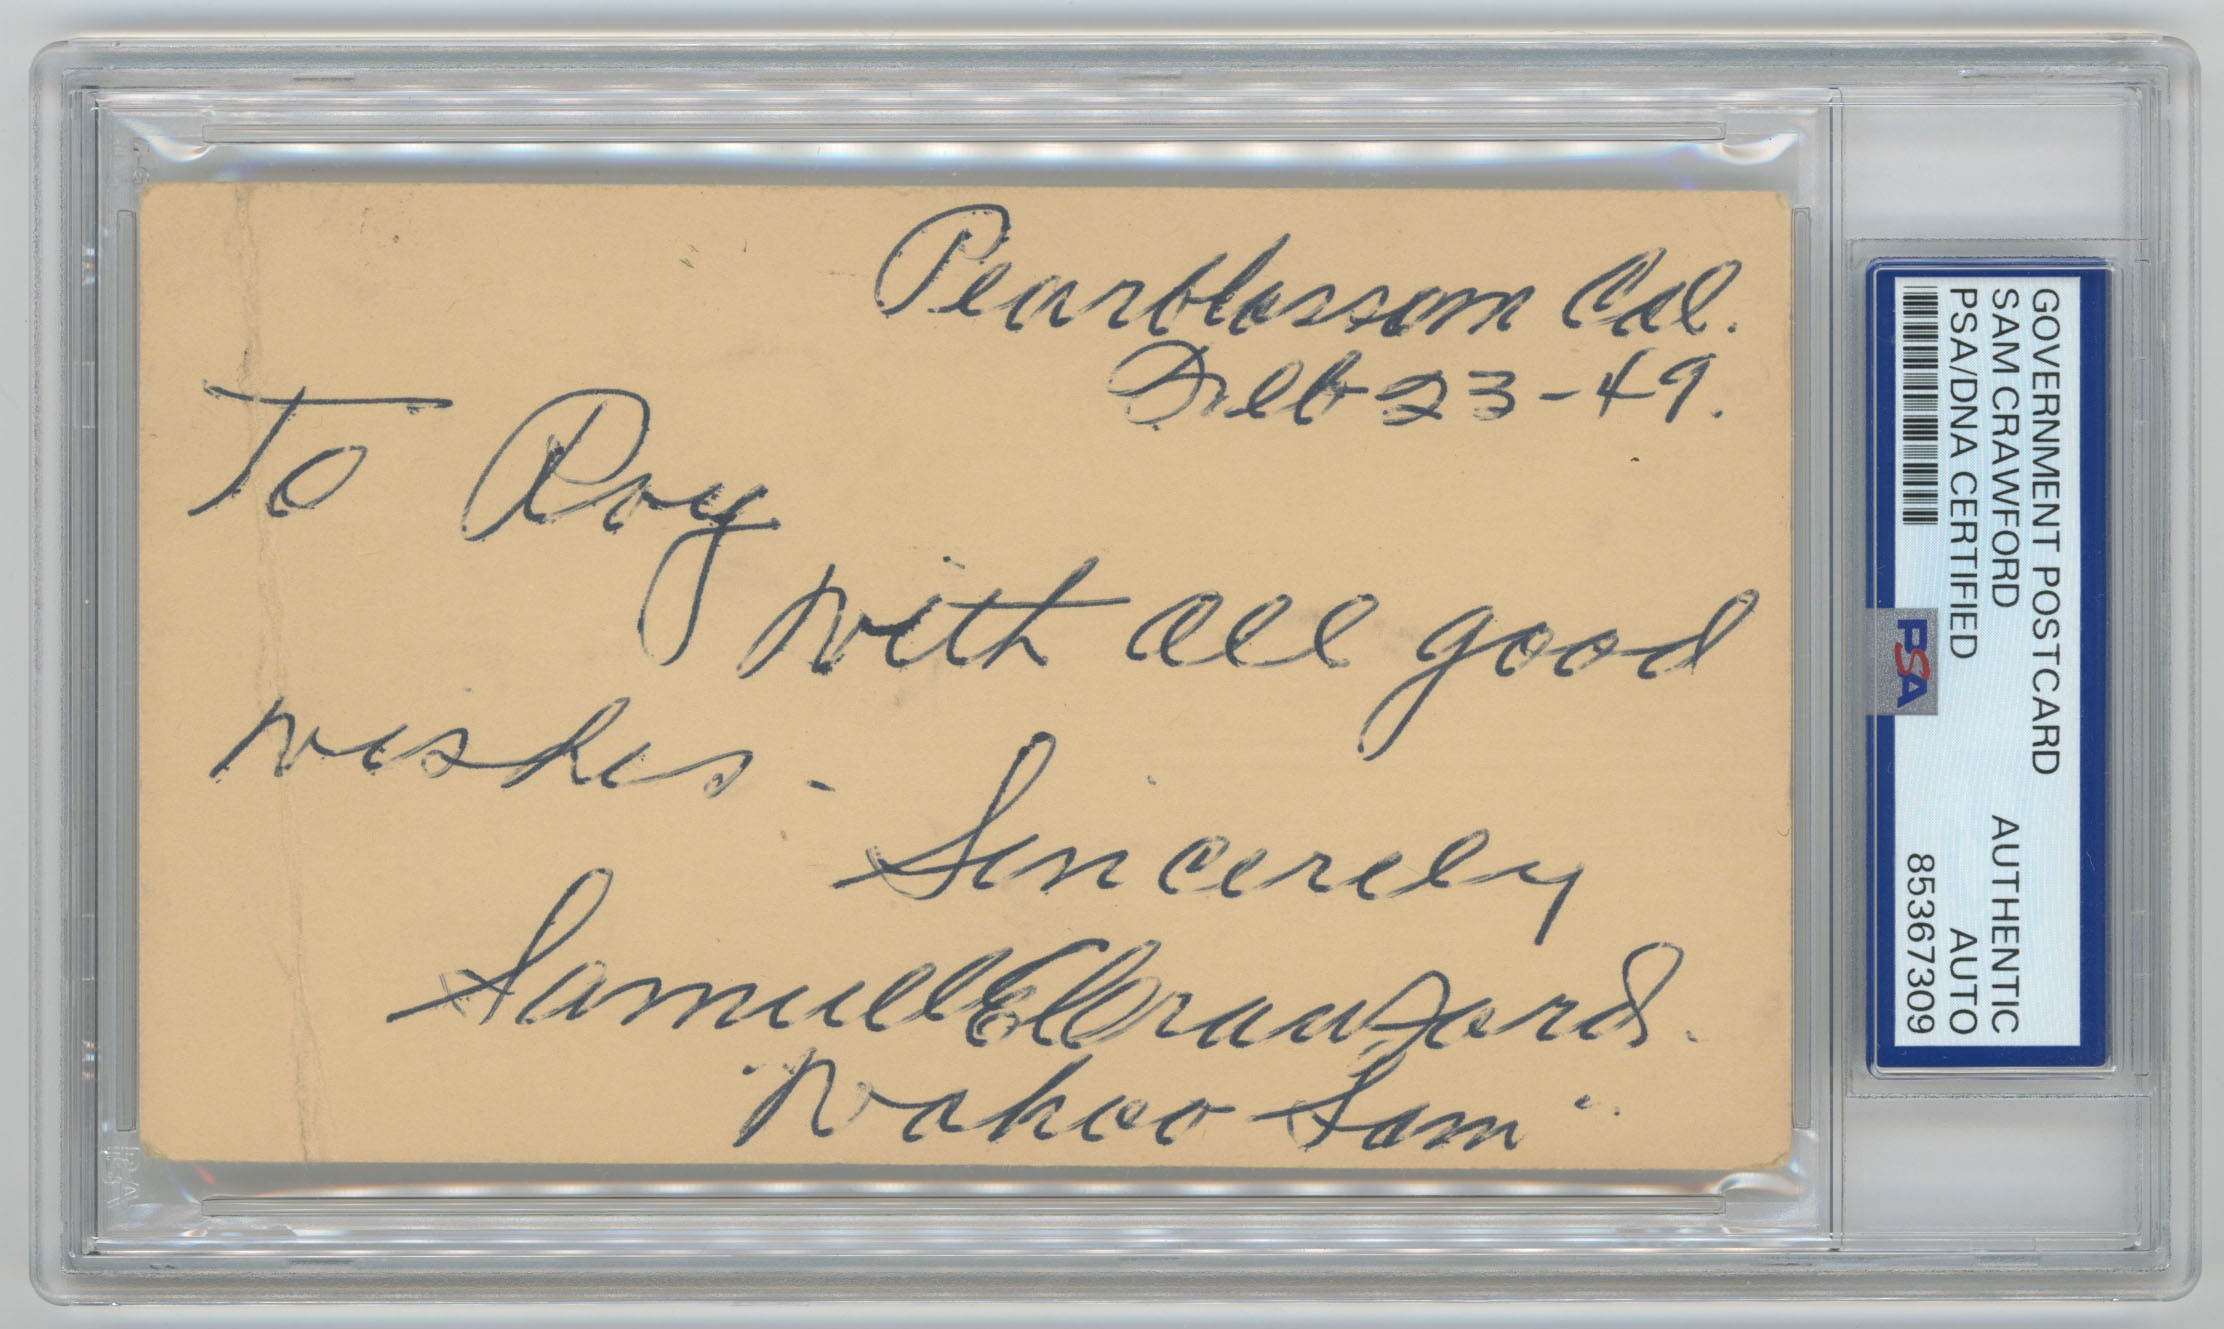 Pearblossom Cal.
Feb 23-49.
To Roy
with all good
wishes.
Sincerely
Samuel E Crawford.
"Wahoo Sam"
GOVERNMENT POSTCARD
SAM CRAWFORD AUTHENTIC
PSA/DNA CERTIFIED AUTO
85367309
PSA